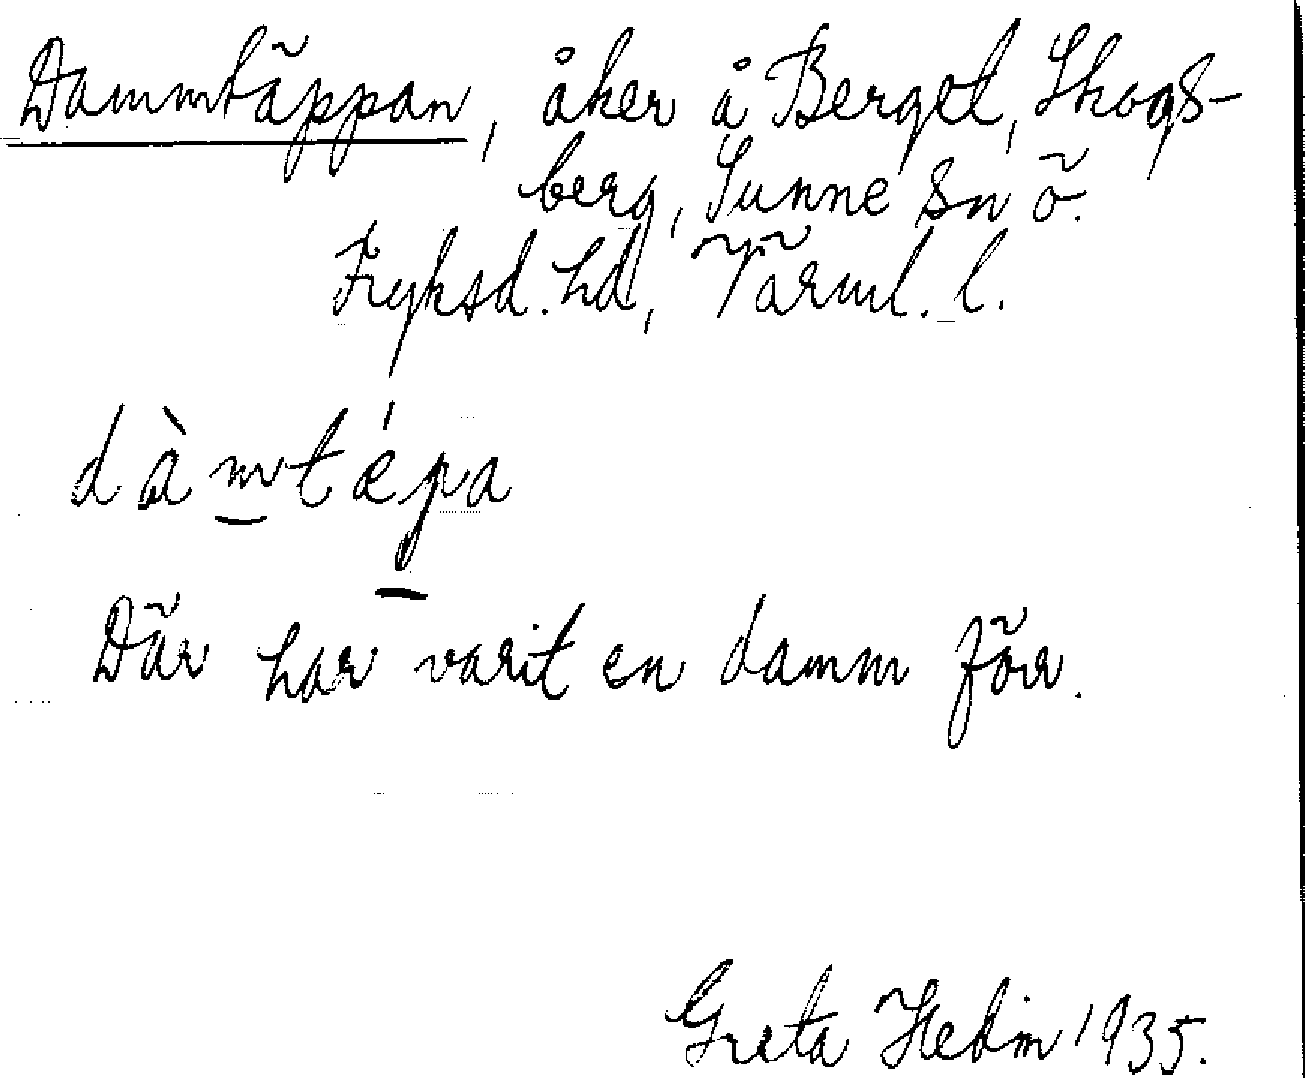 Dammtäppan, åker å Berget, Skogs-
berg, Sunne sn ö.
Fryksd. hd, Värml. l.
dàm̲tǽp̲a
Där har varit en damm förr.
Greta Hedin 1935.